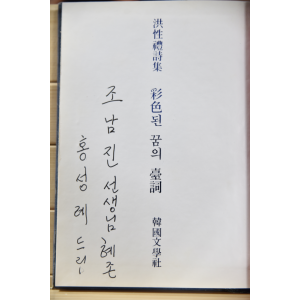 洪性禮詩集
彩色된 꿈의 臺詞
韓國文學社
조남진 선생님 혜존
홍성례 드림